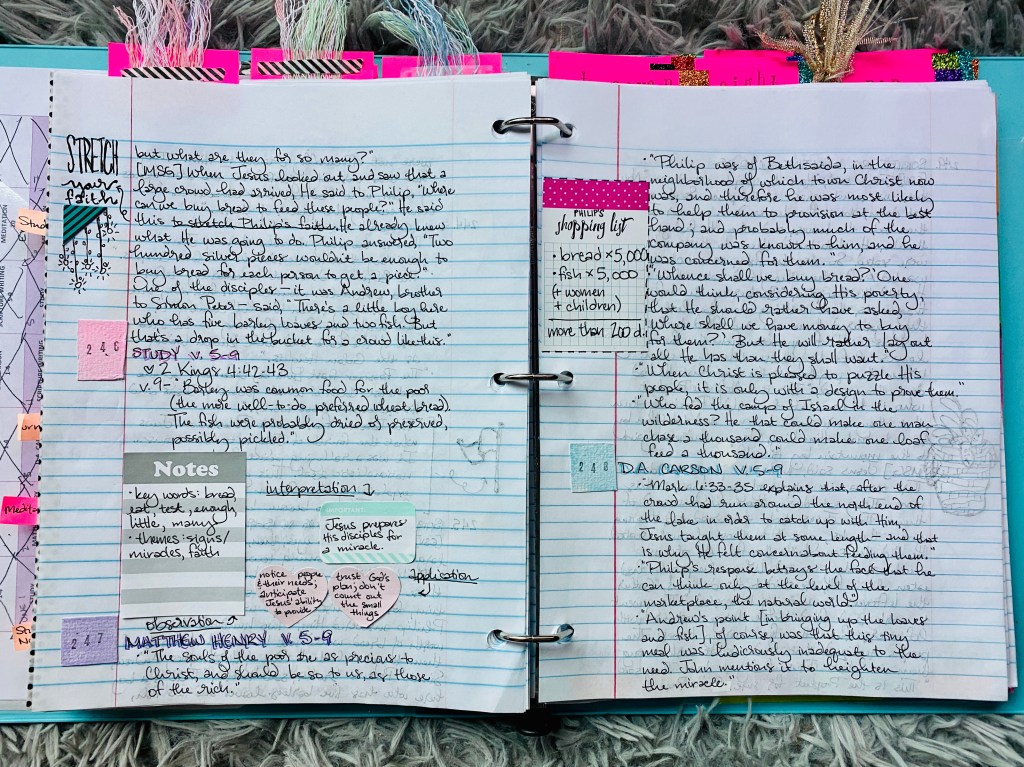 STRETCH
your
faith
but what are they for so many?"
[MSG] When Jesus looked out and saw that a
large crowd had arrived, He said to Philip, "Where
can we buy bread to feed these people?" He said
this to stretch Philip's faith. He already knew
what He was going to do. Philip answered, "Two
hundred silver pieces wouldn't be enough to
buy bread for each person to get a piece."
One of the disciples—it was Andrew, brother
to Simon Peter—said, "There's a little boy here
who has five barley loaves and two fish. But
that's a drop in the bucket for a crowd like this."
246
STUDY V. 5-9
♡ 2 Kings 4:42-43
v. 9- "Barley was common food for the poor
(the more well-to-do preferred wheat bread).
The fish were probably dried or preserved,
possibly pickled."
Notes
• key words: bread,
eat, test, enough,
little, many
• themes: signs/
miracles, faith
observation
interpretation
IMPORTANT:
Jesus prepares
His disciples for
a miracle.
application
notice people
& their needs;
anticipate
Jesus' ability
to provide
trust God's
plan; don't
count out
the small
things
247
MATTHEW HENRY V. 5-9
• "The souls of the poor are as precious to
Christ, and should be so to us, as those
of the rich."
PHILIP'S
shopping list
• bread × 5,000
• fish × 5,000
(+ women
+ children)
more than 200 d
• "Philip was of Bethsaida, in the
neighborhood of which town Christ now
was, and therefore he was most likely
to help them to provision at the best
hand; and probably much of the
company was known to him, and he
was concerned for them."
"'Whence shall we buy bread?' One
would think, considering His poverty,
that He should rather have asked,
'Where shall we have money to buy
for them?' But He will rather lay out
all He has than they shall want."
• "When Christ is pleased to puzzle His
people, it is only with a design to prove them."
• "Who fed the camp of Israel in the
wilderness? He that could make one man
chase a thousand could make one loaf
feed a thousand."
248
D.A. CARSON V. 5-9
• "Mark 6:33-35 explains that, after the
crowd had run around the north end of
the lake in order to catch up with Him,
Jesus taught them at some length—and that
is why He felt concern about feeding them."
• "Philip's response betrays the fact that he
can think only at the level of the
marketplace, the natural world."
• "Andrew's point [in bringing up the loaves
and fish], of course, was that this tiny
meal was ludicrously inadequate to the
need. John mentions it to heighten
the miracle."